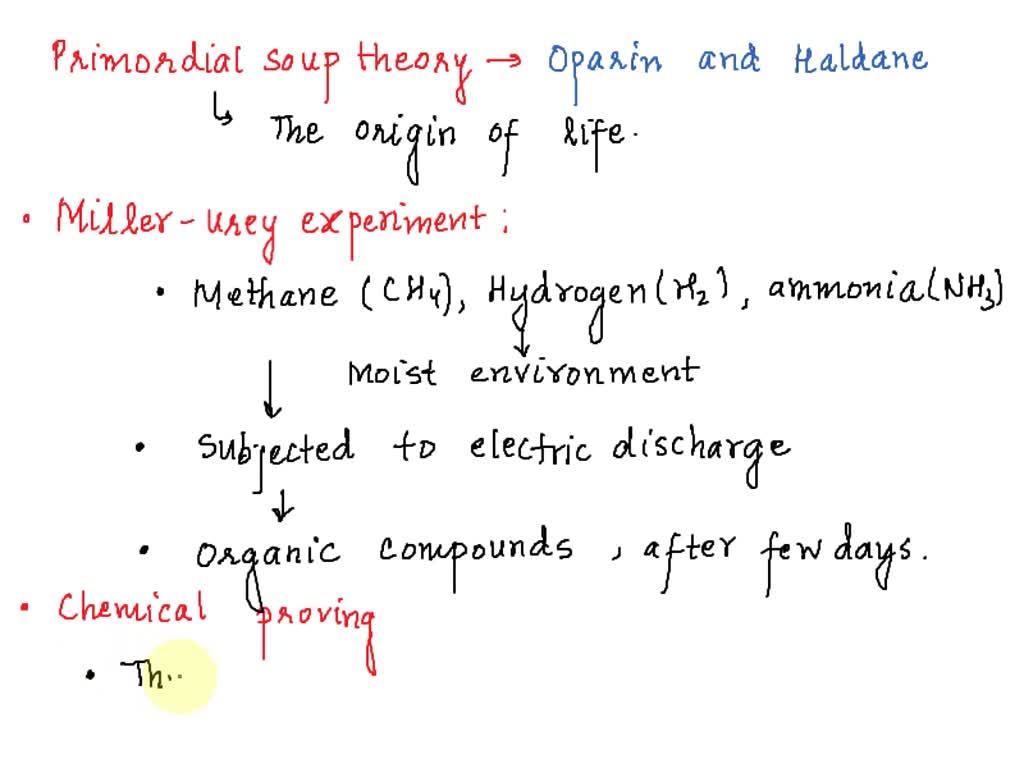 Primordial soup theory → Oparin and Haldane
↳ The origin of life.
• Miller-urey experiment:
• Methane (CH4), Hydrogen(H2), ammonia(NH3)
↓ Moist environment
• Subjected to electric discharge
↓
• Organic compounds, after few days.
• Chemical proving
• Th